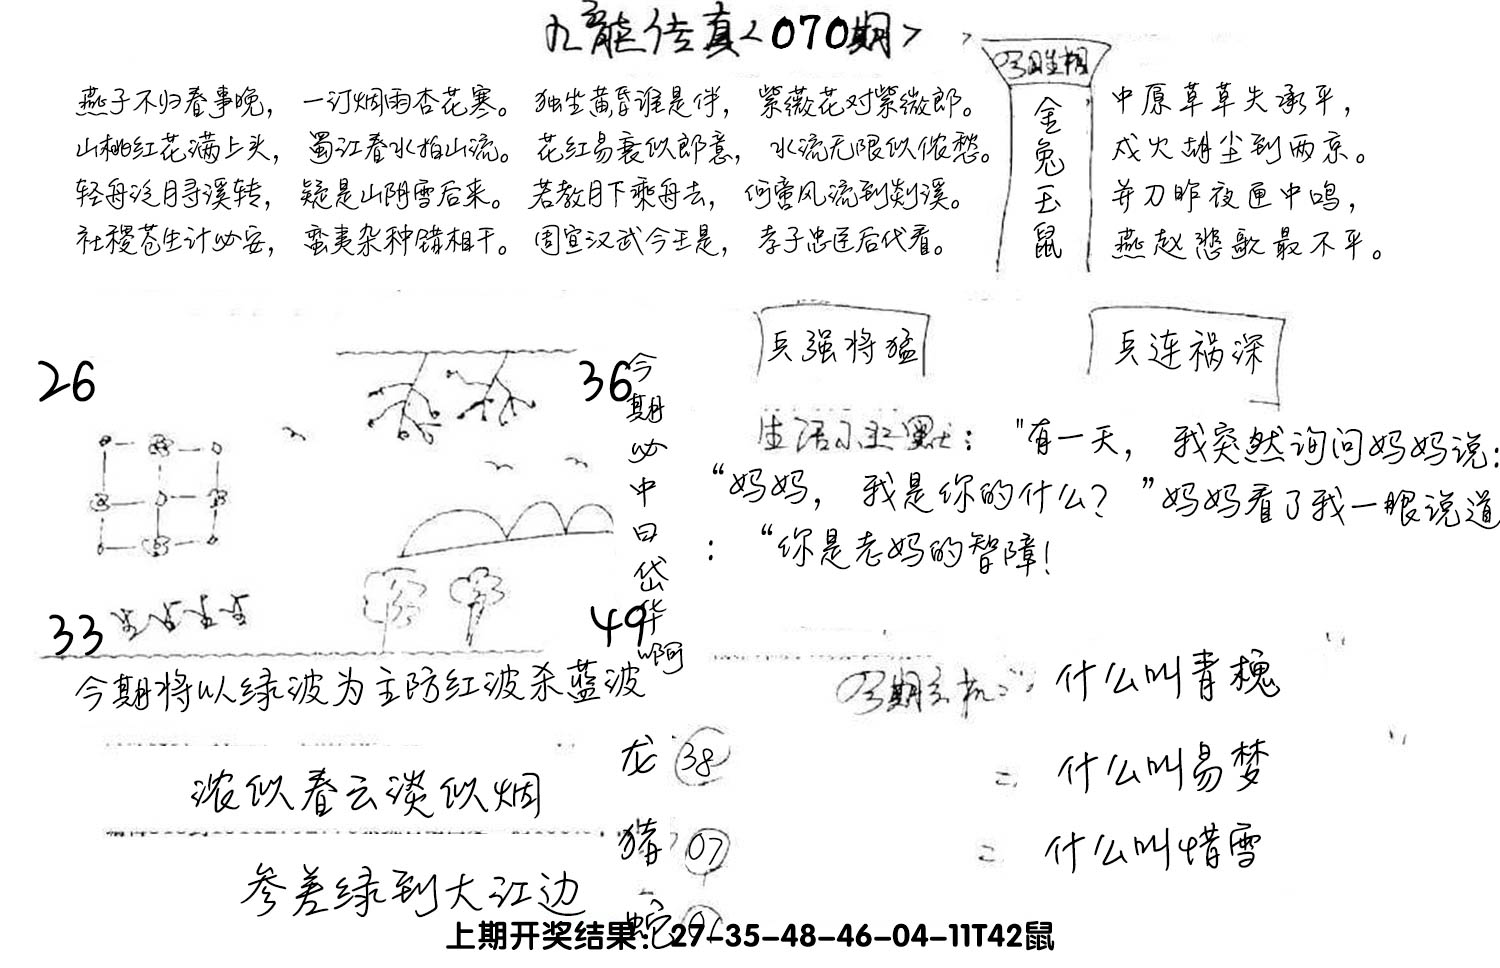 九龙传真<070期>
今日生相
金兔玉鼠
燕子不归春事晚，一汀烟雨杏花寒。独坐黄昏谁是伴，紫薇花对紫微郎。
山桃红花满上头，蜀江春水拍山流。花红易衰似郎意，水流无限似侬愁。
轻舟泛月寻溪转，疑是山阴雪后来。若教月下乘舟去，何啻风流到剡溪。
社稷苍生计必安，蛮夷杂种错相干。周宣汉武今王是，孝子忠臣后代看。
中原草草失承平，
戍火胡尘到两京。
并刀昨夜匣中鸣，
燕赵悲歌最不平。
26
36
33
49
今期必中曰岱华啊
今期将以绿波为主防红波杀蓝波
兵强将猛
兵连祸深
生活小幽默："有一天，我突然询问妈妈说：
“妈妈，我是你的什么？”妈妈看了我一眼说道
：“你是老妈的智障！
浓似春云淡似烟
参差绿到大江边
龙 38
猪 07
蛇
今期玄机 什么叫青槐
= 什么叫易梦
= 什么叫惜雪
上期开奖结果：27-35-48-46-04-11T42鼠